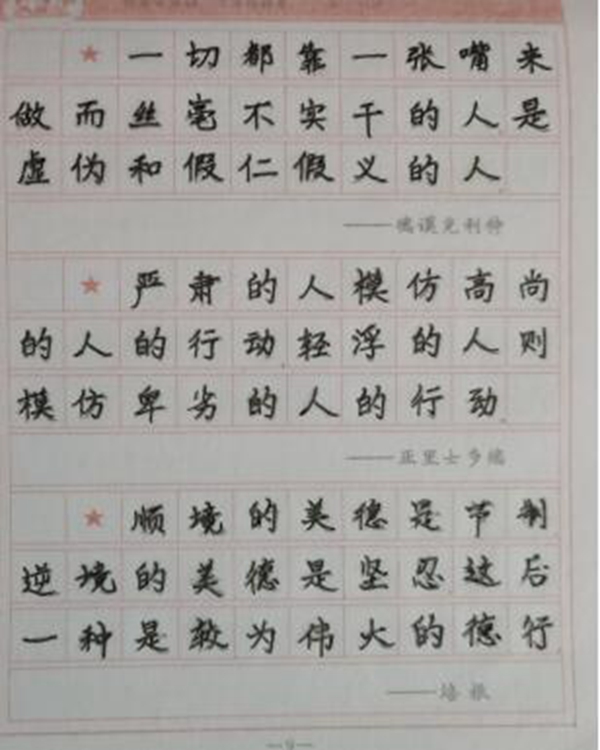 ★一切都靠一张嘴来
做而丝毫不实干的人是
虚伪和假仁假义的人
——德谟克利特
★严肃的人模仿高尚
的人的行动轻浮的人则
模仿卑劣的人的行动
——亚里士多德
★顺境的美德是节制
逆境的美德是坚忍这后
一种是较为伟大的德行
——培根
—9—